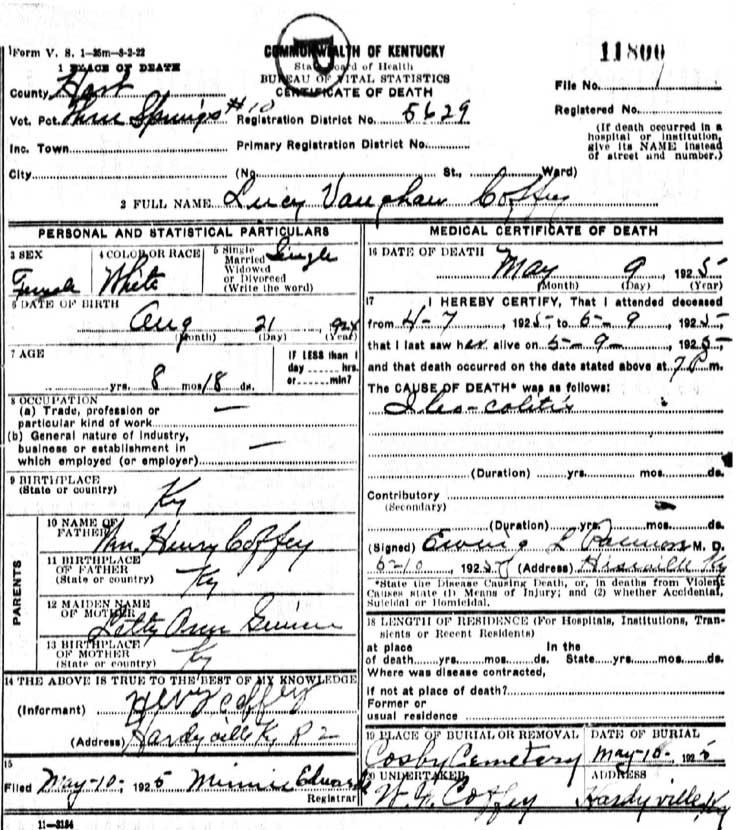 Form V. S. 1-25m-8-2-22
COMMONWEALTH OF KENTUCKY
State Board of Health
BUREAU OF VITAL STATISTICS
CERTIFICATE OF DEATH
11800
1 PLACE OF DEATH
County Hart
File No.
Vot. Pct. Three Springs #10 Registration District No. 5629
Registered No.
Inc. Town Primary Registration District No.
(If death occurred in a hospital or institution, give its NAME instead of street and number.)
City (No. St., Ward)
2 FULL NAME Lucy Vaughan Coffey
PERSONAL AND STATISTICAL PARTICULARS
3 SEX Female
4 COLOR OR RACE White
5 Single Married Widowed or Divorced (Write the word) Single
6 DATE OF BIRTH
Aug 21, 1924
(Month) (Day) (Year)
7 AGE
yrs. 8 mos. 18 ds.
IF LESS than 1 day hrs. or min?
8 OCCUPATION
(a) Trade, profession or particular kind of work —
(b) General nature of industry, business or establishment in which employed (or employer) —
9 BIRTHPLACE
(State or country) Ky
PARENTS
10 NAME OF FATHER Wm. Henry Coffey
11 BIRTHPLACE OF FATHER
(State or country) Ky
12 MAIDEN NAME OF MOTHER Letty Ann
13 BIRTHPLACE OF MOTHER
(State or country) Ky
14 THE ABOVE IS TRUE TO THE BEST OF MY KNOWLEDGE
(Informant) Henry Coffey
(Address) Hardyville Ky R 2
15
Filed May-10-, 1925 Minnie Edwards
Registrar
11-3184
MEDICAL CERTIFICATE OF DEATH
16 DATE OF DEATH
May 9, 1925
(Month) (Day) (Year)
17 I HEREBY CERTIFY, That I attended deceased
from 4-7, 1925- to 5-9, 1925-
that I last saw her alive on 5-9-, 1925-
and that death occurred on the date stated above at 7 P m.
The CAUSE OF DEATH* was as follows:
Ileo-colitis
(Duration) yrs. mos. ds.
Contributory
(Secondary)
(Duration) yrs. mos. ds.
(Signed) Ewing L M. D.
5-10, 1925 (Address) Hiseville Ky
*State the Disease Causing Death, or, in deaths from Violent
Causes state (1) Means of Injury; and (2) whether Accidental,
Suicidal or Homicidal.
18 LENGTH OF RESIDENCE (For Hospitals, Institutions, Transients or Recent Residents)
at place of death yrs. mos. ds. In the State yrs. mos. ds.
Where was disease contracted,
if not at place of death?
Former or
usual residence
19 PLACE OF BURIAL OR REMOVAL
Cosby Cemetery
DATE OF BURIAL
May-10-, 1925
20 UNDERTAKER
Coffey
ADDRESS
Hardyville, Ky